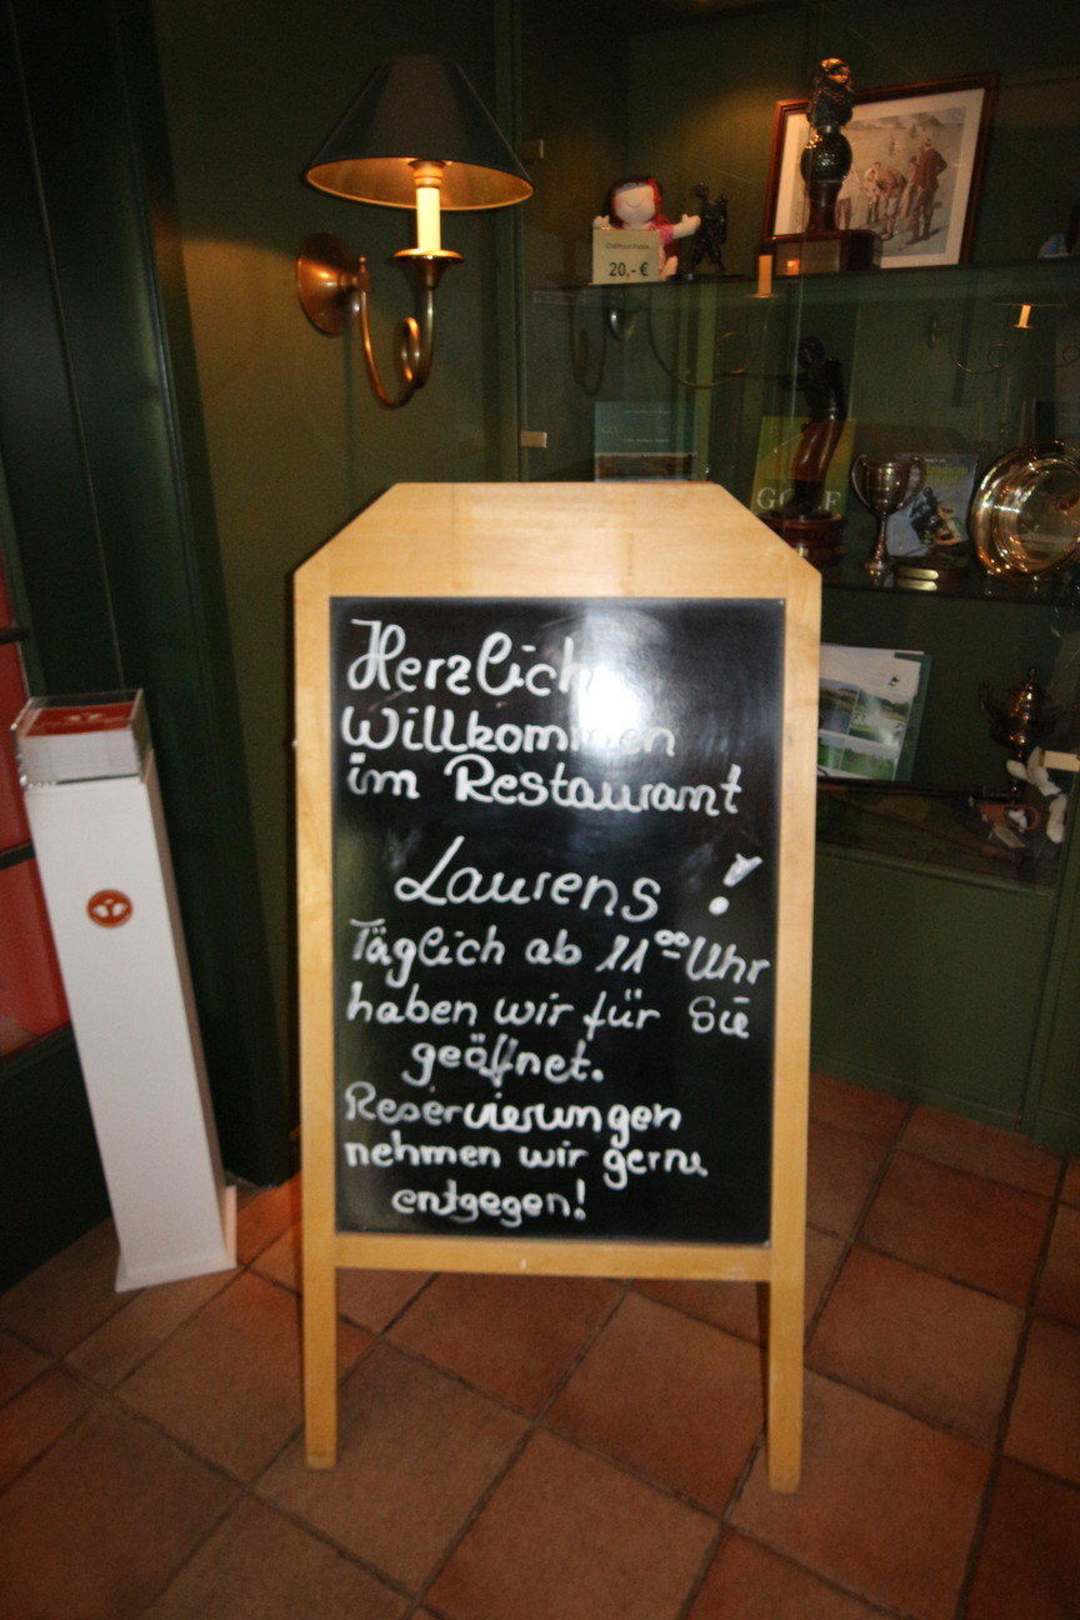 20,- €
GOLF
Herzlich
Willkommen
im Restaurant
Laurens !
Täglich ab 11⁰⁰ Uhr
haben wir für Sie
geöffnet.
Reservierungen
nehmen wir gerne
entgegen!